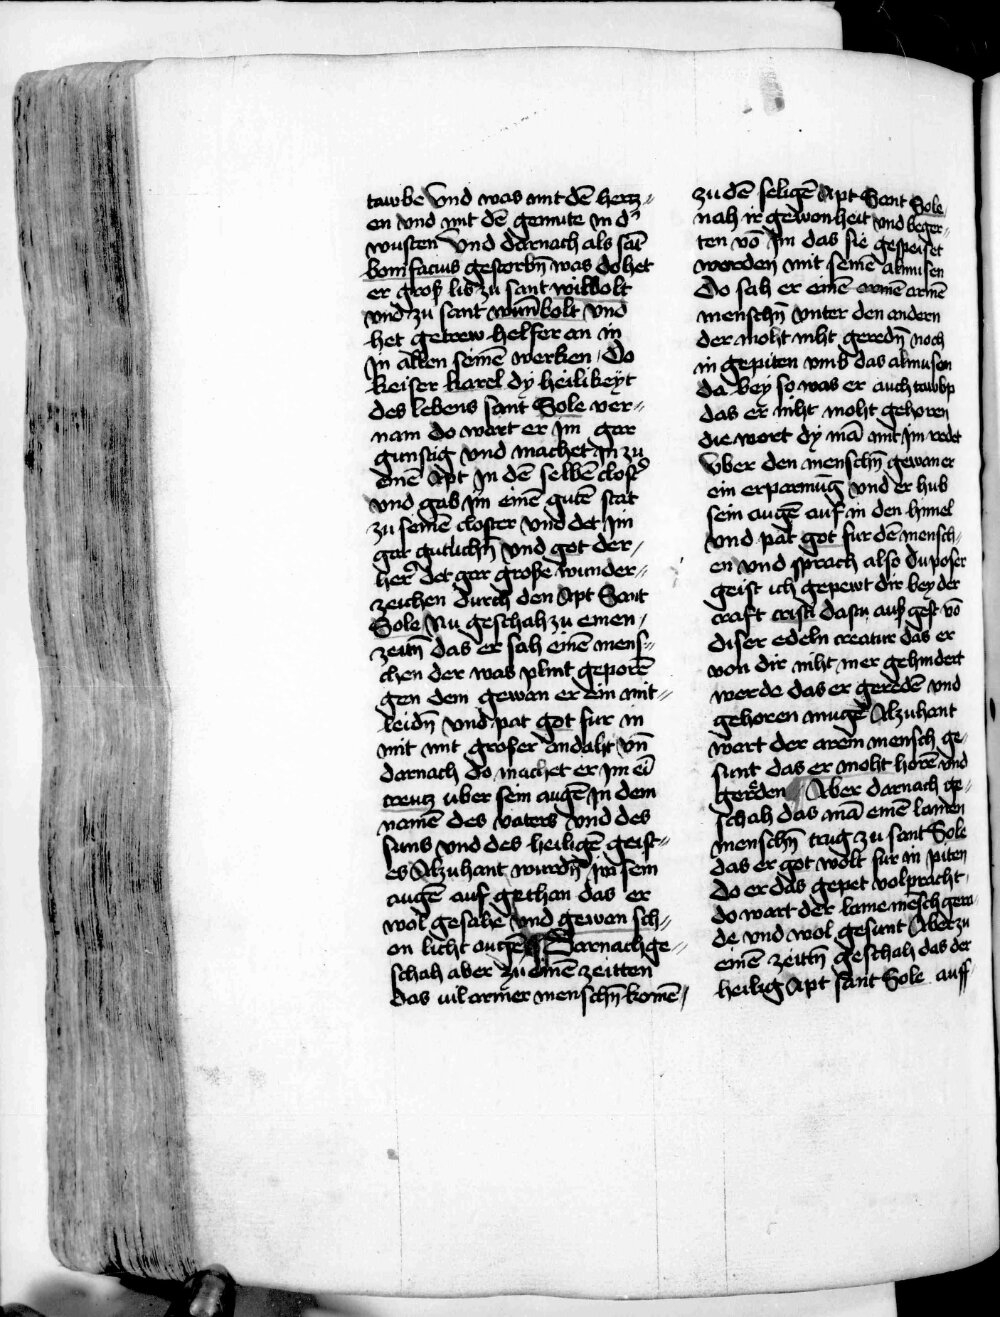 tawbe Vnd was mit dē hertz⸗
en vnd mit dē gemute in d᾽
wusten Vnd darnach als sāt
bonifacius gestorbn̄ was do het
er groß lib zu sant wilbolt
vnd zu sant wūnbolt vnd
het getrew helfer an in
Jn allen seinē werken Do
keiser karel dy heilikeyt
des lebens sant Sole ver⸗
nam do wart er jm gar
gunstig vnd machet jn zu
einē Apt Jn dē selbē clost᾽
vnd gab jm einē gutē stat
zu seinē closter Vnd det jm
gar gutlichn̄ vnd got der
her᾽ det gar große wunder⸗
zeichen durch den Apt Sant
Sole Nu geschah zu einen
zeitn̄ das er sah einē mens⸗
chen der was plint geporē
gen dem gewan er ein mit⸗
leidn̄ vnd pat got fur in
mit mit großer andaht vn̄
darnach do machet er jm eī
creutz uber sein augē Jn dem
namē des vaters vnd des
suns vnd des heiligē geist⸗
es Alzuhant wurdn̄ jm sein
augē auf gethan das er
wol gesahe Vnd gewan sch⸗
on licht augē Darnach ge⸗
schah aber zu einē zeitten
das vil armer menschn̄ komē
zu dē seligē Apt Sant Sole
nah ir gewonheit vnd beger⸗
ten vō jm das sie gespeiset
werden mit seinē almusen
Do sah er einē armē armē
menschn̄ vnter den andern
der moht niht geredn̄ noch
in gepiten vmb das almusen
da bey so was er auch tawbp
das er niht moht gehoren
die wort dy mā mit jm redet
Vber den menschn̄ gewan er
ein erparmūg vnd er hub
sein augē auf in den himel
vnd pat got fur dē mensch⸗
en vnd sprach also du poser
geist ich gepewt dir bey der
craft cristi dastu auß gest vō
diser edeln creatur das er
von dir niht mer gehindert
werde das er geredē vnd
gehoren mugē Alzuhant
wart der arem mensch ge⸗
sunt das er moht horē vnd
gereden Aber darnach ge⸗
schah das mā einen lamen
menschn̄ trug zu sant Sole
das er got wolt fur in piten
do er das gepet volpracht
do wart der lame mēsch gera⸗
de vnd wol gesunt Aber zu
einē zeitn̄ geschah das der
heilig Apt sant Sole auff